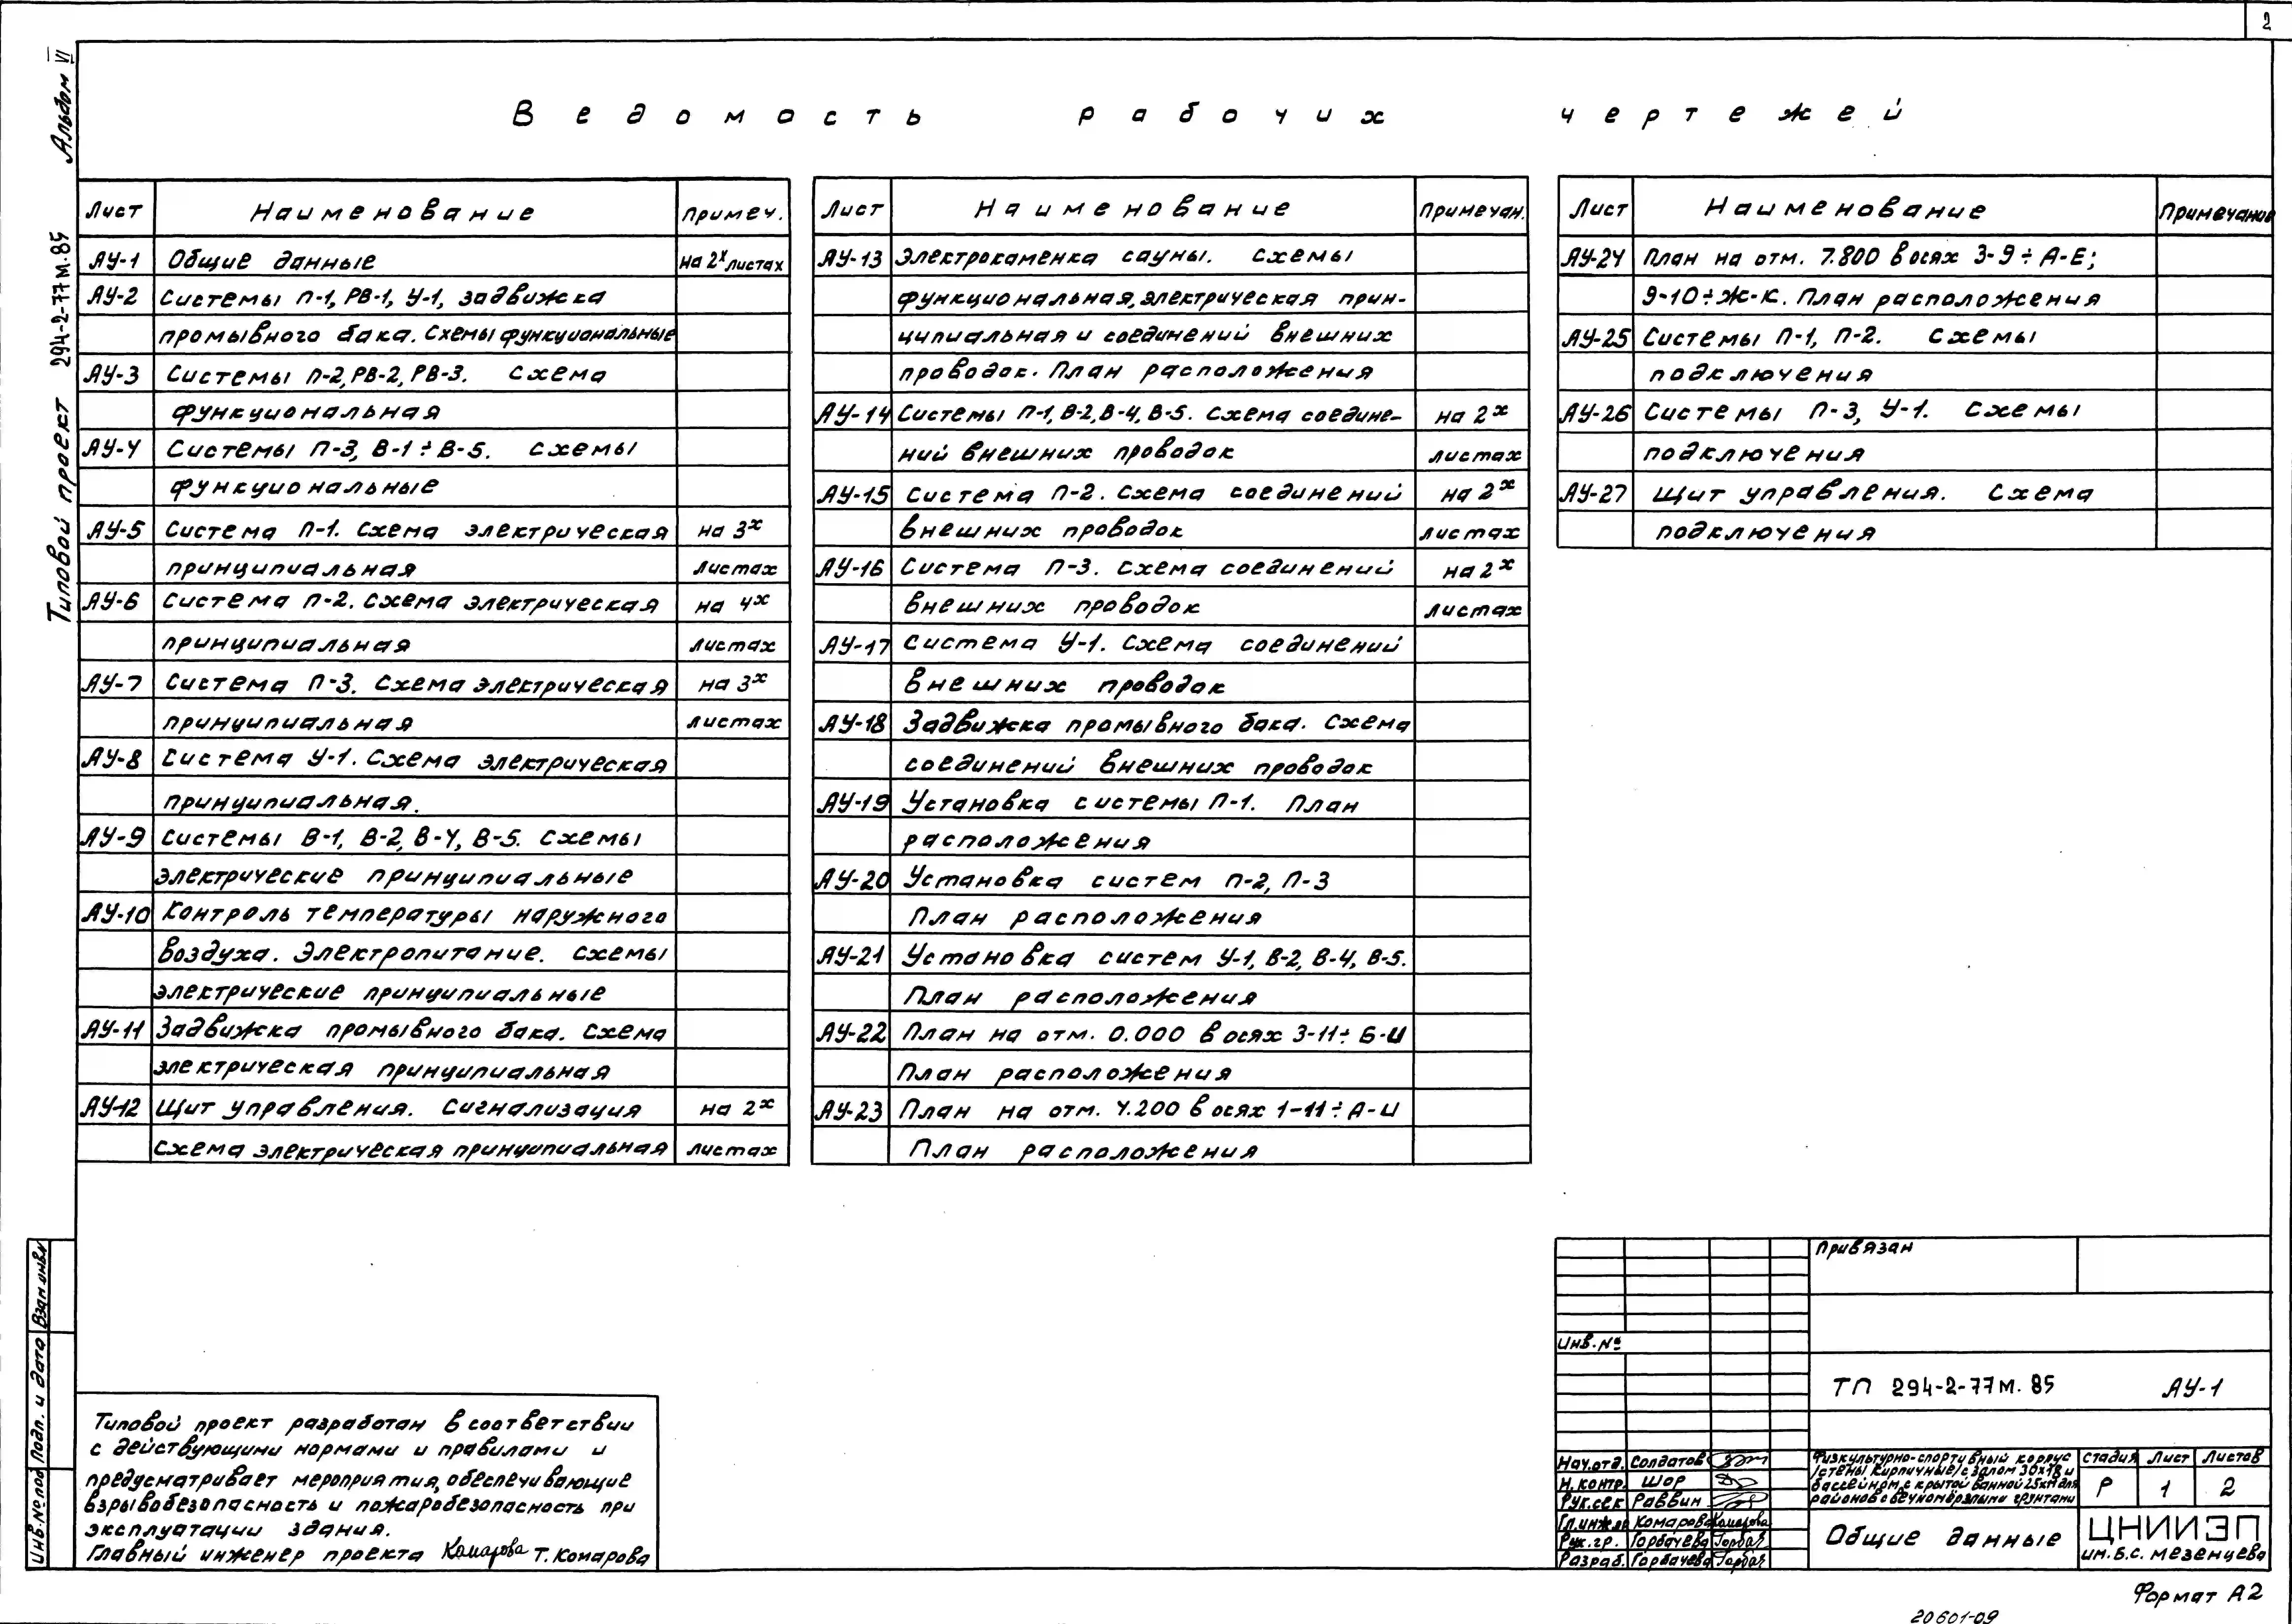 2
Альбом VI
Типовой проект 294-2-77м.85
Ведомость рабочих чертежей
Лист Наименование Примеч.
АУ-1 Общие данные на 2х листах
АУ-2 Системы П-1, РВ-1, У-1, задвижка
промывного бака. Схемы функциональные
АУ-3 Системы П-2, РВ-2, РВ-3. Схема
функциональная
АУ-4 Системы П-3, В-1÷В-5. Схемы
функциональные
АУ-5 Система П-1. Схема электрическая на 3х
принципиальная листах
АУ-6 Система П-2. Схема электрическая на 4х
принципиальная листах
АУ-7 Система П-3. Схема электрическая на 3х
принципиальная листах
АУ-8 Система У-1. Схема электрическая
принципиальная.
АУ-9 Системы В-1, В-2, В-4, В-5. Схемы
электрические принципиальные
АУ-10 Контроль температуры наружного
воздуха. Электропитание. Схемы
электрические принципиальные
АУ-11 Задвижка промывного бака. Схема
электрическая принципиальная
АУ-12 Щит управления. Сигнализация на 2х
схема электрическая принципиальная листах
Лист Наименование Примечан.
АУ-13 Электрокаменка сауны. Схемы
функциональная, электрическая прин-
ципиальная и соединений внешних
проводок. План расположения
АУ-14 Системы П-1, В-2, В-4, В-5. Схема соедине- на 2х
ний внешних проводок листах
АУ-15 Система П-2. Схема соединений на 2х
внешних проводок листах
АУ-16 Система П-3. Схема соединений на 2х
внешних проводок листах
АУ-17 Система У-1. Схема соединений
внешних проводок
АУ-18 Задвижка промывного бака. Схема
соединений внешних проводок
АУ-19 Установка системы П-1. План
расположения
АУ-20 Установка систем П-2, П-3
План расположения
АУ-21 Установка систем У-1, В-2, В-4, В-5.
План расположения
АУ-22 План на отм. 0.000 в осях 3-11÷Б-И
План расположения
АУ-23 План на отм. 4.200 в осях 1-11÷А-И
План расположения
Лист Наименование Примечание
АУ-24 План на отм. 7.800 в осях 3-9÷А-Е;
9-10÷Ж-К. План расположения
АУ-25 Системы П-1, П-2. Схемы
подключения
АУ-26 Системы П-3, У-1. Схемы
подключения
АУ-27 Щит управления. Схема
подключения
Типовой проект разработан в соответствии
с действующими нормами и правилами и
предусматривает мероприятия, обеспечивающие
взрывобезопасность и пожаробезопасность при
эксплуатации здания.
Главный инженер проекта Комарова Т. Комарова
Взам инв.№
Подп. и дата
Инв.№ под
Привязан
Инв.№
ТП 294-2-77м.85 АУ-1
Нач.отд. Солдатов
Н.контр. Шор
Рук.сек Раввин
Гл.инж.пр Комарова Комарова
Рук.гр. Горбачева
Разраб. Горбачева
Физкультурно-спортивный корпус
/стены кирпичные/ с залом 30х18 и
бассейном с крытой ванной 25х11 для
районов с вечномерзлыми грунтами
Стадия Лист Листов
Р 1 2
Общие данные
ЦНИИЭП
им. Б.С. Мезенцева
Формат А2
20601-09